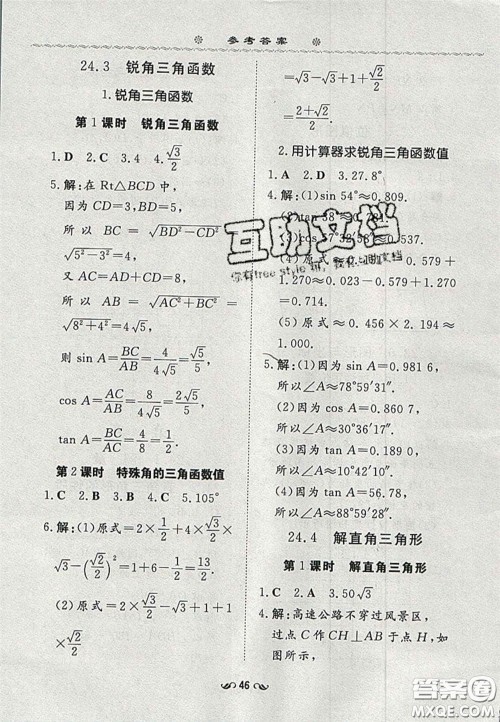 参考答案
24.3 锐角三角函数
1.锐角三角函数
第1课时 锐角三角函数
1. D 2. C 3. 4 4. √3/2
5. 解:在 Rt△BCD 中,
因为 CD=3, BD=5,
所以 BC = √(BD²−CD²) =
√(5²−3²)=4.
又 AC=AD+CD=8,
所以 AB = √(AC²+BC²) =
√(8²+4²)=4√5.
则 sin A=BC/AB=4/(4√5)=√5/5,
cos A=AC/AB=8/(4√5)=2√5/5,
tan A=BC/AC=4/8=1/2.
第2课时 特殊角的三角函数值
1. C 2. D 3. B 4. C 5. 105°
6. 解:(1)原式=2×1/2+4×√3/2×
√3−(√2/2)²=1+6−1/2=13/2.
(2)原式=2×√2/2−√3+1+1/2×
√2
=√2−√3+√3+1+√2/2
=(2+√2)/2.
2.用计算器求锐角三角函数值
1. A 2. D 3. 27.8°
4. 解:(1)sin 54°≈0.809.
(3)cos 57.5°≈0.537.
0.579+
1.270=0.714.
(5)原式≈0.456×2.194≈
1.000.
5. 解:(1)因为 sin A=0.981 6,
所以∠A≈78°59′31″.
(2)因为 cos A=0.860 7,
所以∠A≈30°36′17″.
所以∠A≈10°42′15″.
(4)因为 tan A=56.78,
所以∠A≈88°59′28″.
24.4 解直角三角形
第1课时 解直角三角形
1. D 2. A 3. 50√3
4. 解:高速公路不穿过风景区,
过点C作CH⊥AB于点H,如
图所示,
46
互助文档
答案圈
MXQE.COM